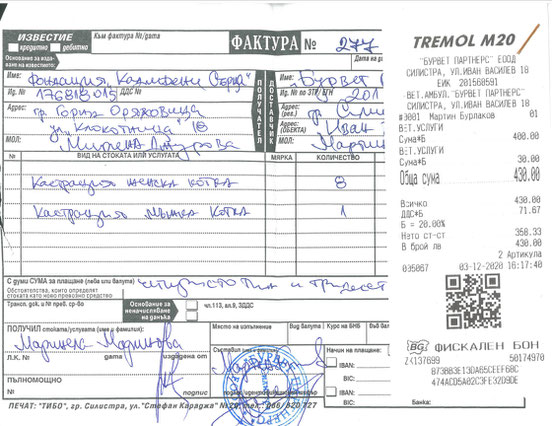 ИЗВЕСТИЕ
кредитно дебитно
Към фактура №/дата
ФАКТУРА № 277
Основание за издаване на известието:
Дата на
Име: Фондация
Име: Бурвет
Ид. №: 176818015 ДДС №
Ид. № по ЗТР/ЕГН 201
Адрес: гр Горна Оряховица
Адрес: (рег.) гр. Сили
ул. "Клокотница"
Адрес: (ОБЕКТА) Иван
МОЛ: Милена
МОЛ: Мартин
ПОЛУЧАТЕЛ
ДОСТАВЧИК
№ ВИД НА СТОКАТА ИЛИ УСЛУГАТА МЯРКА КОЛИЧЕСТВО
Кастрация женска котка 8
Кастрация мъжка котка 1
С думи СУМА за плащане (лева или валута) четиристотин и тридесет
Обстоятелства, които определят стоката като ново превозно средство
Трансп. док. и № прев. ср-во
Основание за неначисляване на данъка
чл.113, ал.9, ЗДДС
ПОЛУЧИЛ стоката/услугата (име и фамилия):
Място на изпълнение
Вид валута
Курс на БНБ
Към вал
Маринела Маринова
Съставил
Начин на плащане:
Л.К. № дата издадена от
IBAN:
ПЪЛНОМОЩНО
№ подпис
IBAN:
Банка:
ПЕЧАТ: "ТИБО", гр. Силистра, ул."Стефан Караджа" № 29, тел. 086/ 820 727
TREMOL M20
"БУРВЕТ ПАРТНЕРС" ЕООД
СИЛИСТРА, УЛ.ИВАН ВАСИЛЕВ 18
ЕИК 201568591
ВЕТ.АМБУЛ. "БУРВЕТ ПАРТНЕРС"
СИЛИСТРА, УЛ.ИВАН ВАСИЛЕВ 18
#3001 Мартин Бурлаков 01
ВЕТ.УСЛУГИ
Сума*Б 400.00
ВЕТ.УСЛУГИ
Сума*Б 30.00
Обща сума 430.00
Всичко 430.00
ДДС*Б 71.67
Б = 20.00%
Нето ст-ст 358.33
В брой лв 430.00
2 Артикула
035067 03-12-2020 16:17:40
BG ФИСКАЛЕН БОН
ZK137699 50174970
B73BB3E13DA65CEEF68C
474AED5A82C3FE32D9DE